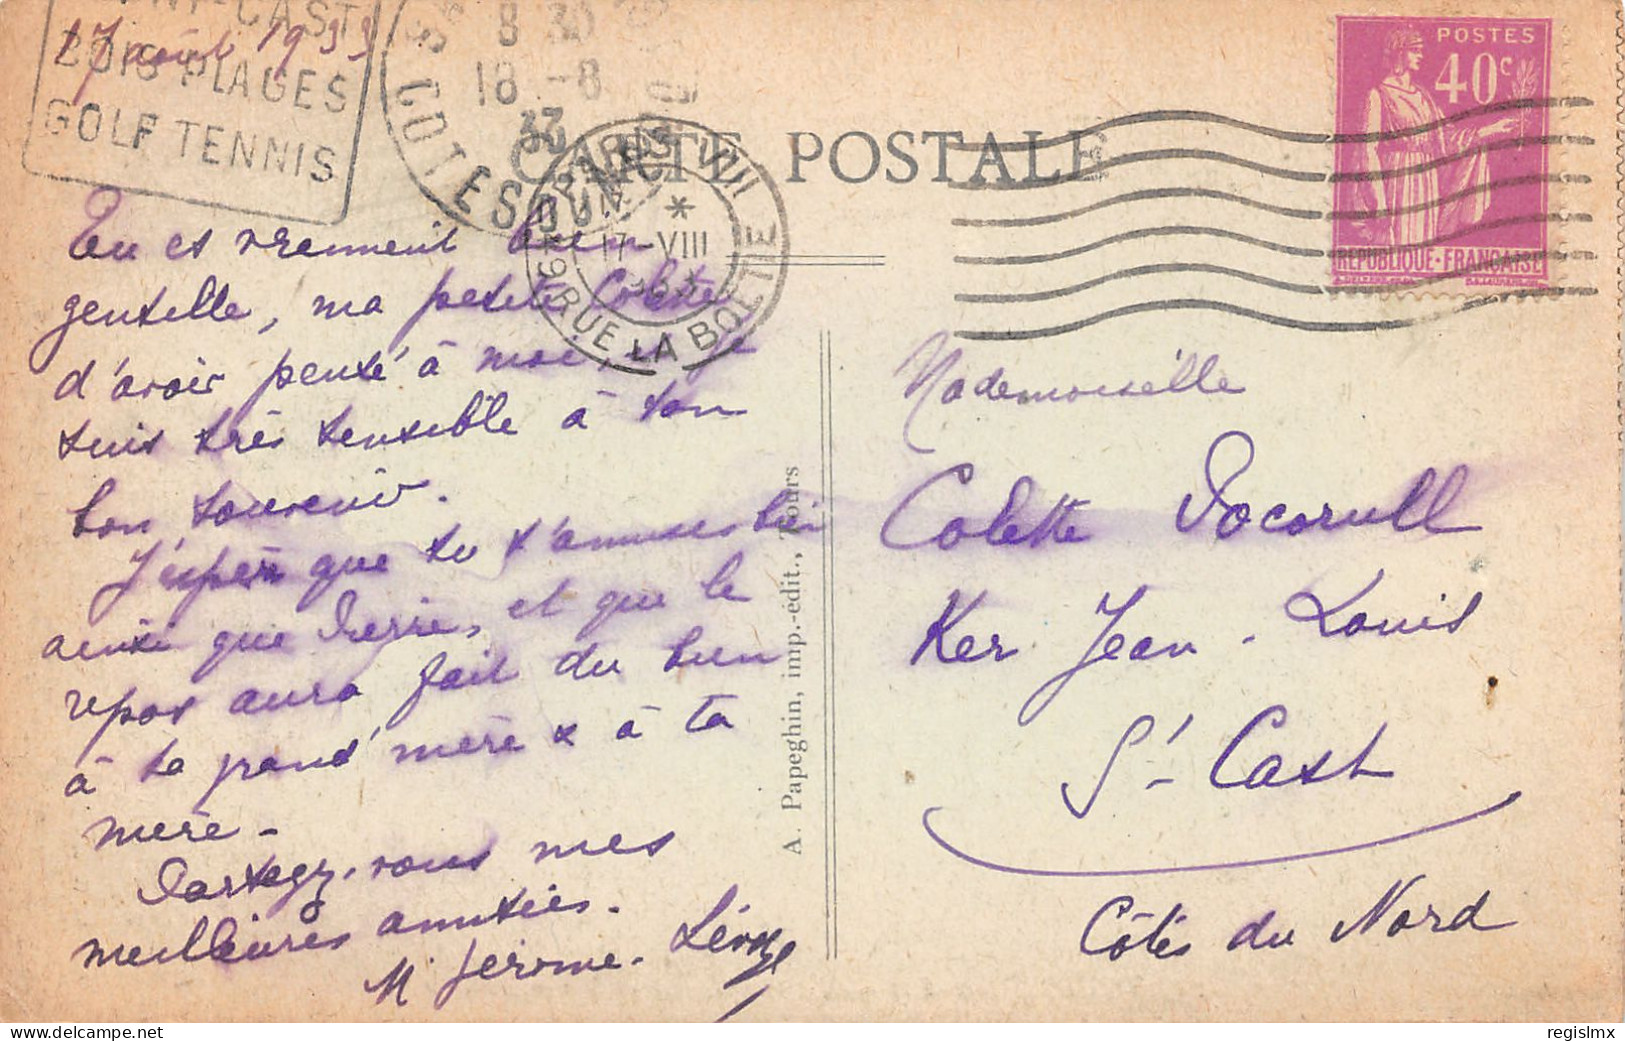 17 août 1933
ST-CAST
PLAGES
GOLF TENNIS
8 30
18 -8
33
COTES DU N
CARTE POSTALE
PARIS VIII
17 VIII
1933
RUE LA BOETIE
POSTES
40c
REPUBLIQUE·FRANÇAISE
Tu es vraiment bien
gentille, ma petite Colette
d'avoir pensé à moi, je
suis très sensible à ton
bon souvenir.
J'espère que tu t'amuses bien
ainsi que Pierre, et que le
repos aura fait du bien
à ta grand'mère & à ta
mère -
Partagez-vous mes
meilleures amitiés.
M Jérome-
A. Papeghin, imp.-édit., Tours
Mademoiselle
Colette
Ker Jean-Louis
St Cast
Côtes du Nord
regislmx